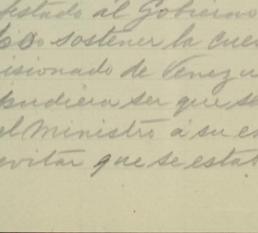 estado al Gobierno
sostener la cue
isionado de Venezu
pudiera ser que se
el Ministro á su es
evitar que se estab